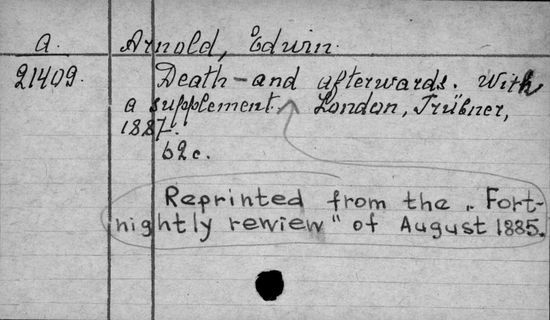 a. Arnold, Edwin.
21409. Death - and afterwards. With
a supplement. London, Trübner,
1887.
62c.
Reprinted from the „Fort-
nightly rewiew" of August 1885.